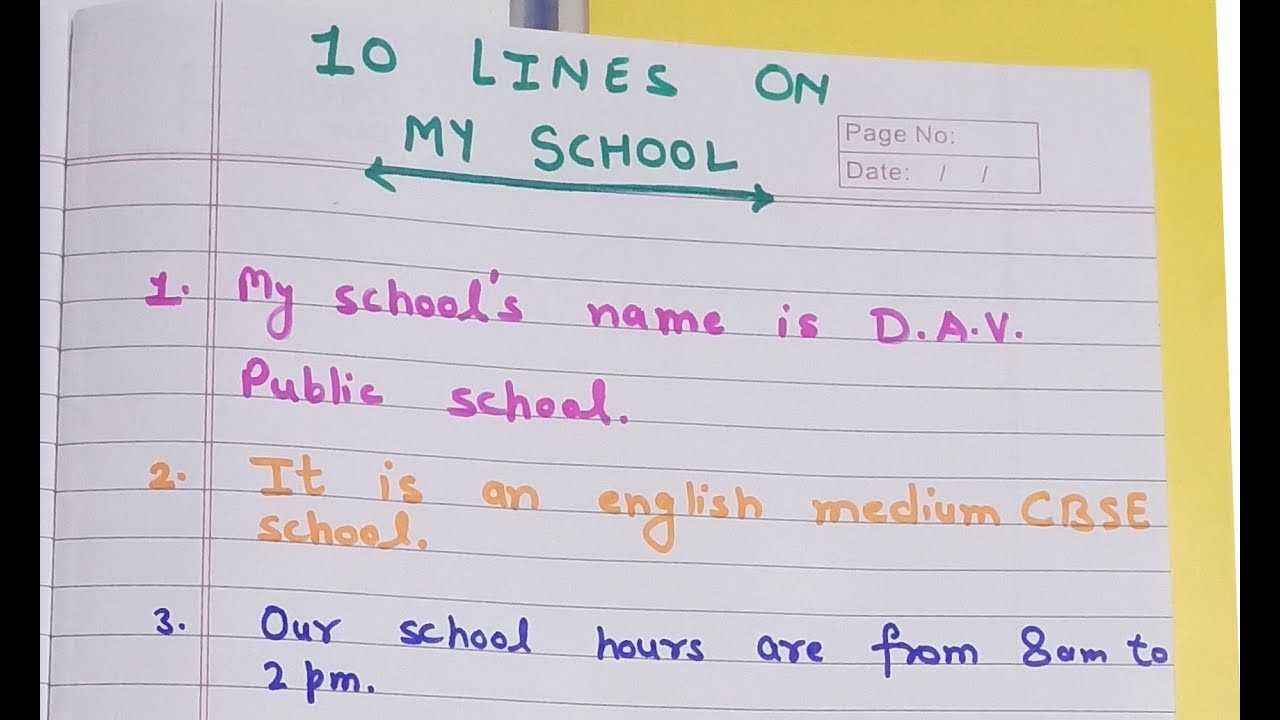 10 LINES ON
MY SCHOOL
Page No:
Date: / /
1. My school's name is D.A.V.
Public school.
2. It is an english medium CBSE
school.
3. Our school hours are from 8am to
2 pm.